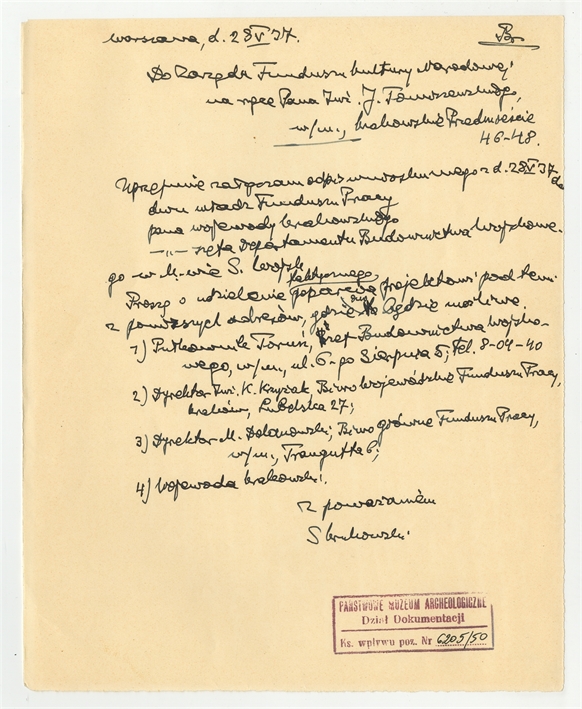 Warszawa, d. 28 V 37.
Br
Do Zarządu Funduszu Kultury Narodowej
na ręce Pana Inż. J. Tomaszewskiego,
w/m., Krakowskie Przedmieście
46-48.
Uprzejmie załączam odpis wniosku mego z d. 28 V 37 do
dwu władz Funduszu Pracy
pana wojewody krakowskiego
—„— szefa Departamentu Budownictwa Wojskowe-
go w M-wie S. Wojsk
faktycznego
Proszę o udzielenie poparcia projektowi pod temi
z powyższych adresów, gdzie to będzie możliwe.
1) Pułkownik Toruń, szef Budownictwa Wojsko-
wego, w/m., ul. 6-go Sierpnia 5; tel. 8-09-40
2) Dyrektor Inż. K. Krzyżak Biuro Wojewódzkie Funduszu Pracy,
Kraków, Lubelska 27;
3) Dyrektor M. Dolanowski; Biuro główne Funduszu Pracy,
w/m., Traugutta 6;
4) Wojewoda krakowski.
Z poważaniem
S Krukowski
PAŃSTWOWE MUZEUM ARCHEOLOGICZNE
Dział Dokumentacji
Ks. wpływu poz. Nr 6205/50